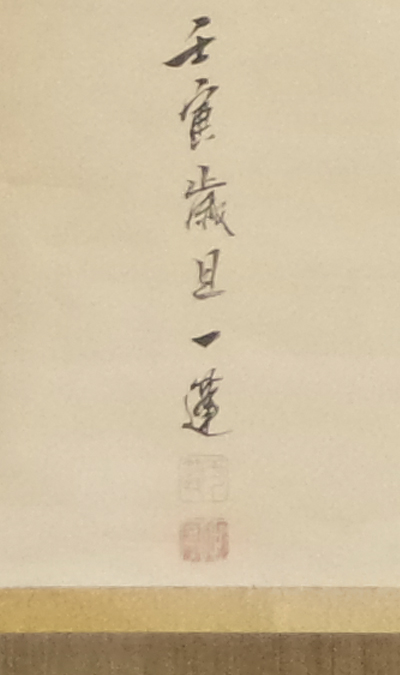 壬寅歳旦一蓬